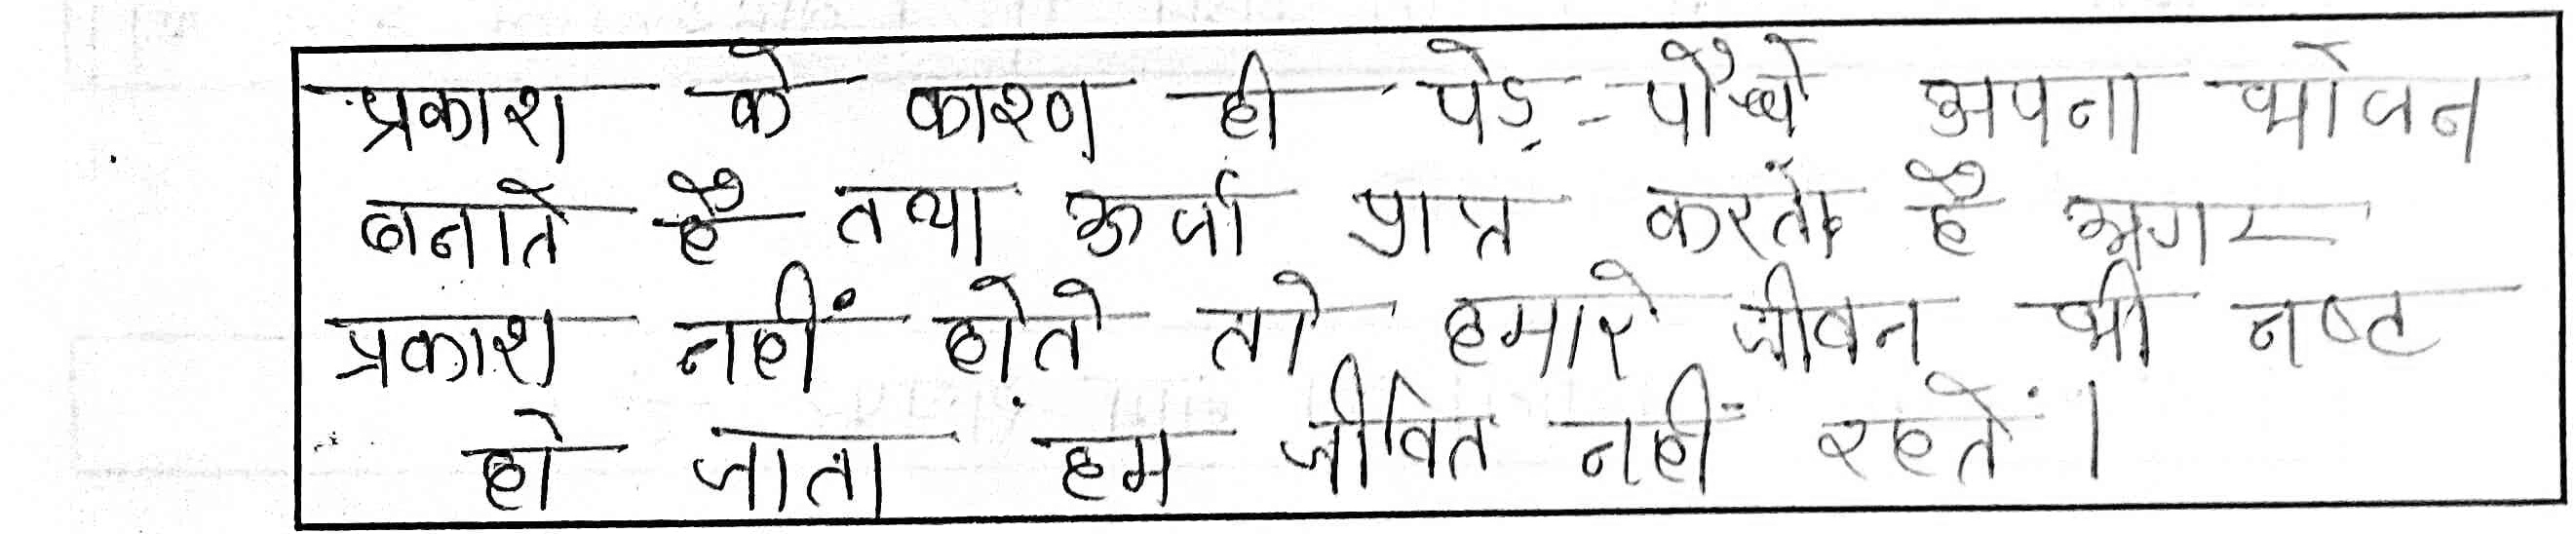 प्रकाश के कारण ही पेड़-पौधे अपना भोजन
बनाते हैं तथा ऊर्जा प्राप्त करते हैं अगर
प्रकाश नहीं होते तो हमारे जीवन भी नष्ट
हो जाता हम जीवित नहीं रहतें।